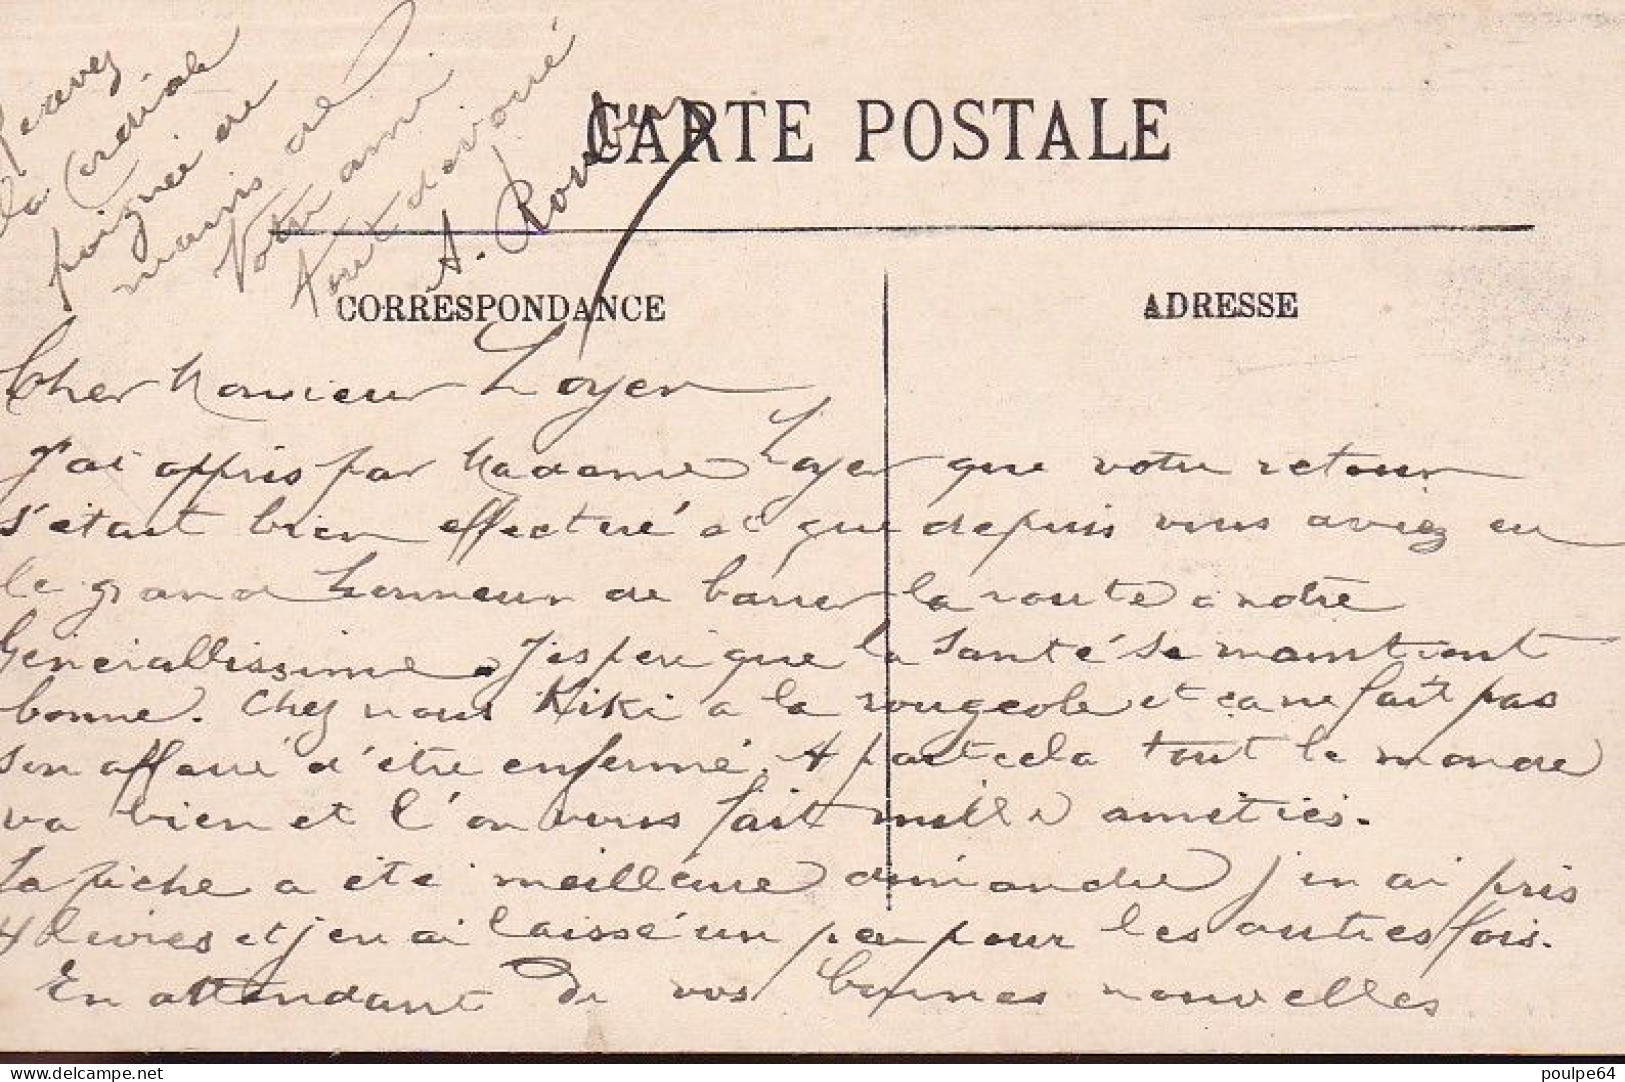 CARTE POSTALE
CORRESPONDANCE
ADRESSE
Cher Monsieur Loyer
J'ai appris par Madame Loyer que votre retour
s'était bien effectué et que depuis vous aviez eu
le grand honneur de barrer la route à notre
Générallissime. J'espère que la santé se maintient
bonne. Chez nous Kiki a la rougeole et ça ne fait pas
son affaire d'être enfermé. A part cela tout le monde
va bien et l'on vous fait mille amitiés.
La pêche a été meilleure dimanche j'en ai pris
4 livres et j'en ai laissé un peu pour les autres fois.
En attendant de vos bonnes nouvelles
Recevez
la cordiale
poignée de
mains de
Votre ami
tout dévoué
A.
delcampe.net
poulpe64